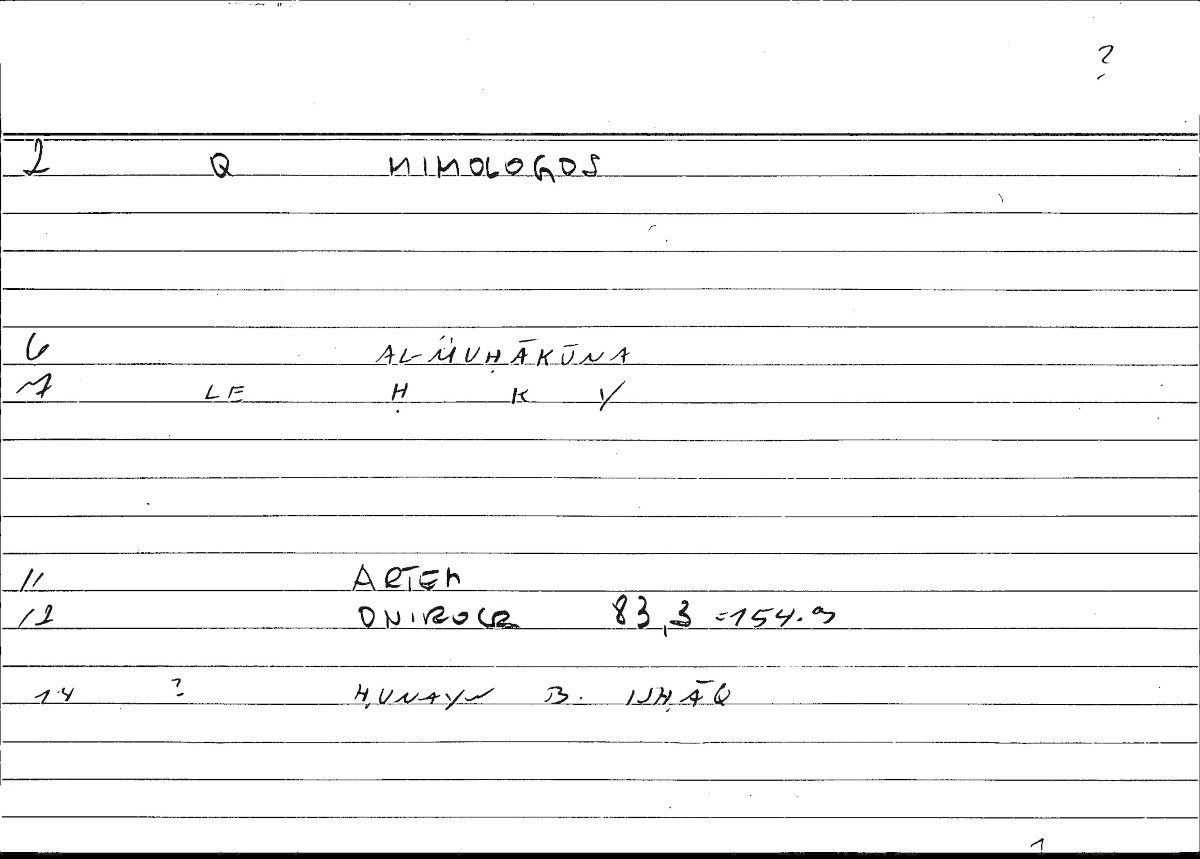 ?
2 Q MIMOLOGOS
6 AL-MUḤĀKŪNA
7 LE Ḥ K Y
11 ARTEM
12 ONIROCR 83,3 = 154.9
14 ? ḤUNAYN B. ISḤĀQ
1